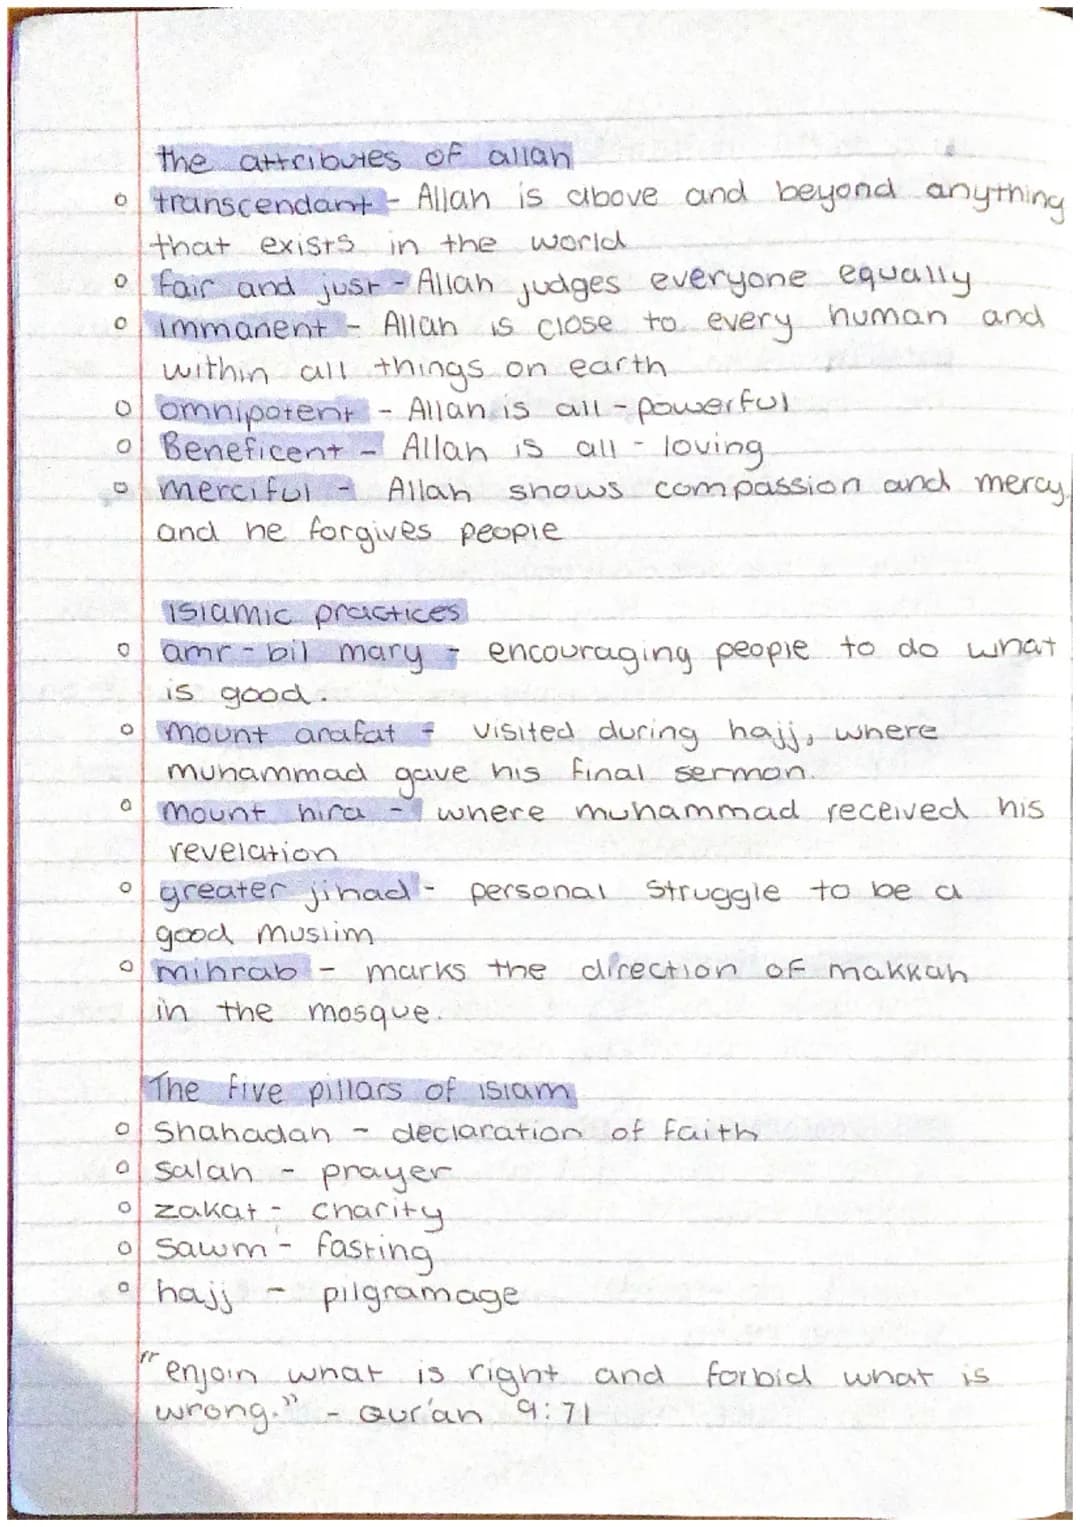 the attributes of allah
transcendant - Allah is above and beyond anything
that exists in the world
fair and just - Allah judges everyone equally
immanent - Allah is close to every human and
within all things on earth
omnipotent - Allah is all-powerful
Beneficent - Allah is all-loving
merciful - Allah shows compassion and mercy
and he forgives people
islamic practices
amr-bil mary - encouraging people to do what
is good.
mount arafat - visited during hajj, where
muhammad gave his final sermon.
mount hira - where muhammad received his
revelation
greater jihad - personal struggle to be a
good muslim
mihrab - marks the direction of makkah
in the mosque.
The five pillars of islam
Shahadah - declaration of faith
salah - prayer
zakat - charity
sawm - fasting
hajj - pilgramage
"enjoin what is right and forbid what is
wrong." - Qur'an 9:71